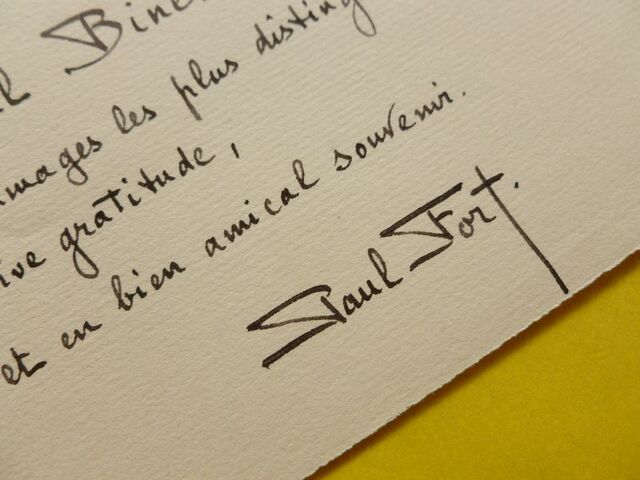 l Binc
mmages les plus disting
ive gratitude,
et en bien amical souvenir.
Paul Fort.